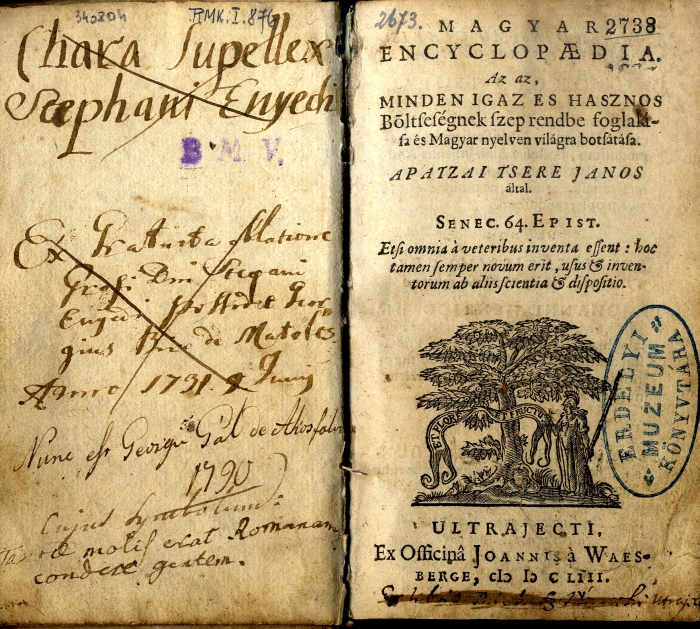 34ozoh
RMK. I. 876
Chara Supellex
Stephani Enyedi
B. M. V.
Ex Gratuita oblatione
Grosi Dni Stepani
Enyedi possidet Geor-
gius de Matolcs
Anno 1731. 9 Junij
Nunc est Georgii Gál de
1790
Cujus Symbolum:
Tantae molis erat Romanam
condere gentem.
2673.
2738
MAGYAR
ENCYCLOPÆDIA.
Az az,
MINDEN IGAZ ES HASZNOS
Bőltseségnek szep rendbe foglalá-
sa és Magyar nyelven világra botsátása.
APATZAI TSERE JANOS
által.
SENEC. 64. EPIST.
Etsi omnia à veteribus inventa essent: hoc
tamen semper novum erit, usus & inven-
torum ab aliis scientia & dispositio.
ET FLORE ET FRUCTU
ERDÉLYI
MUZEUM
KÖNYVTÁRA
ULTRAJECTI,
Ex Officinâ JOANNIS à WAES-
BERGE, cIɔ Iɔ CLIII.